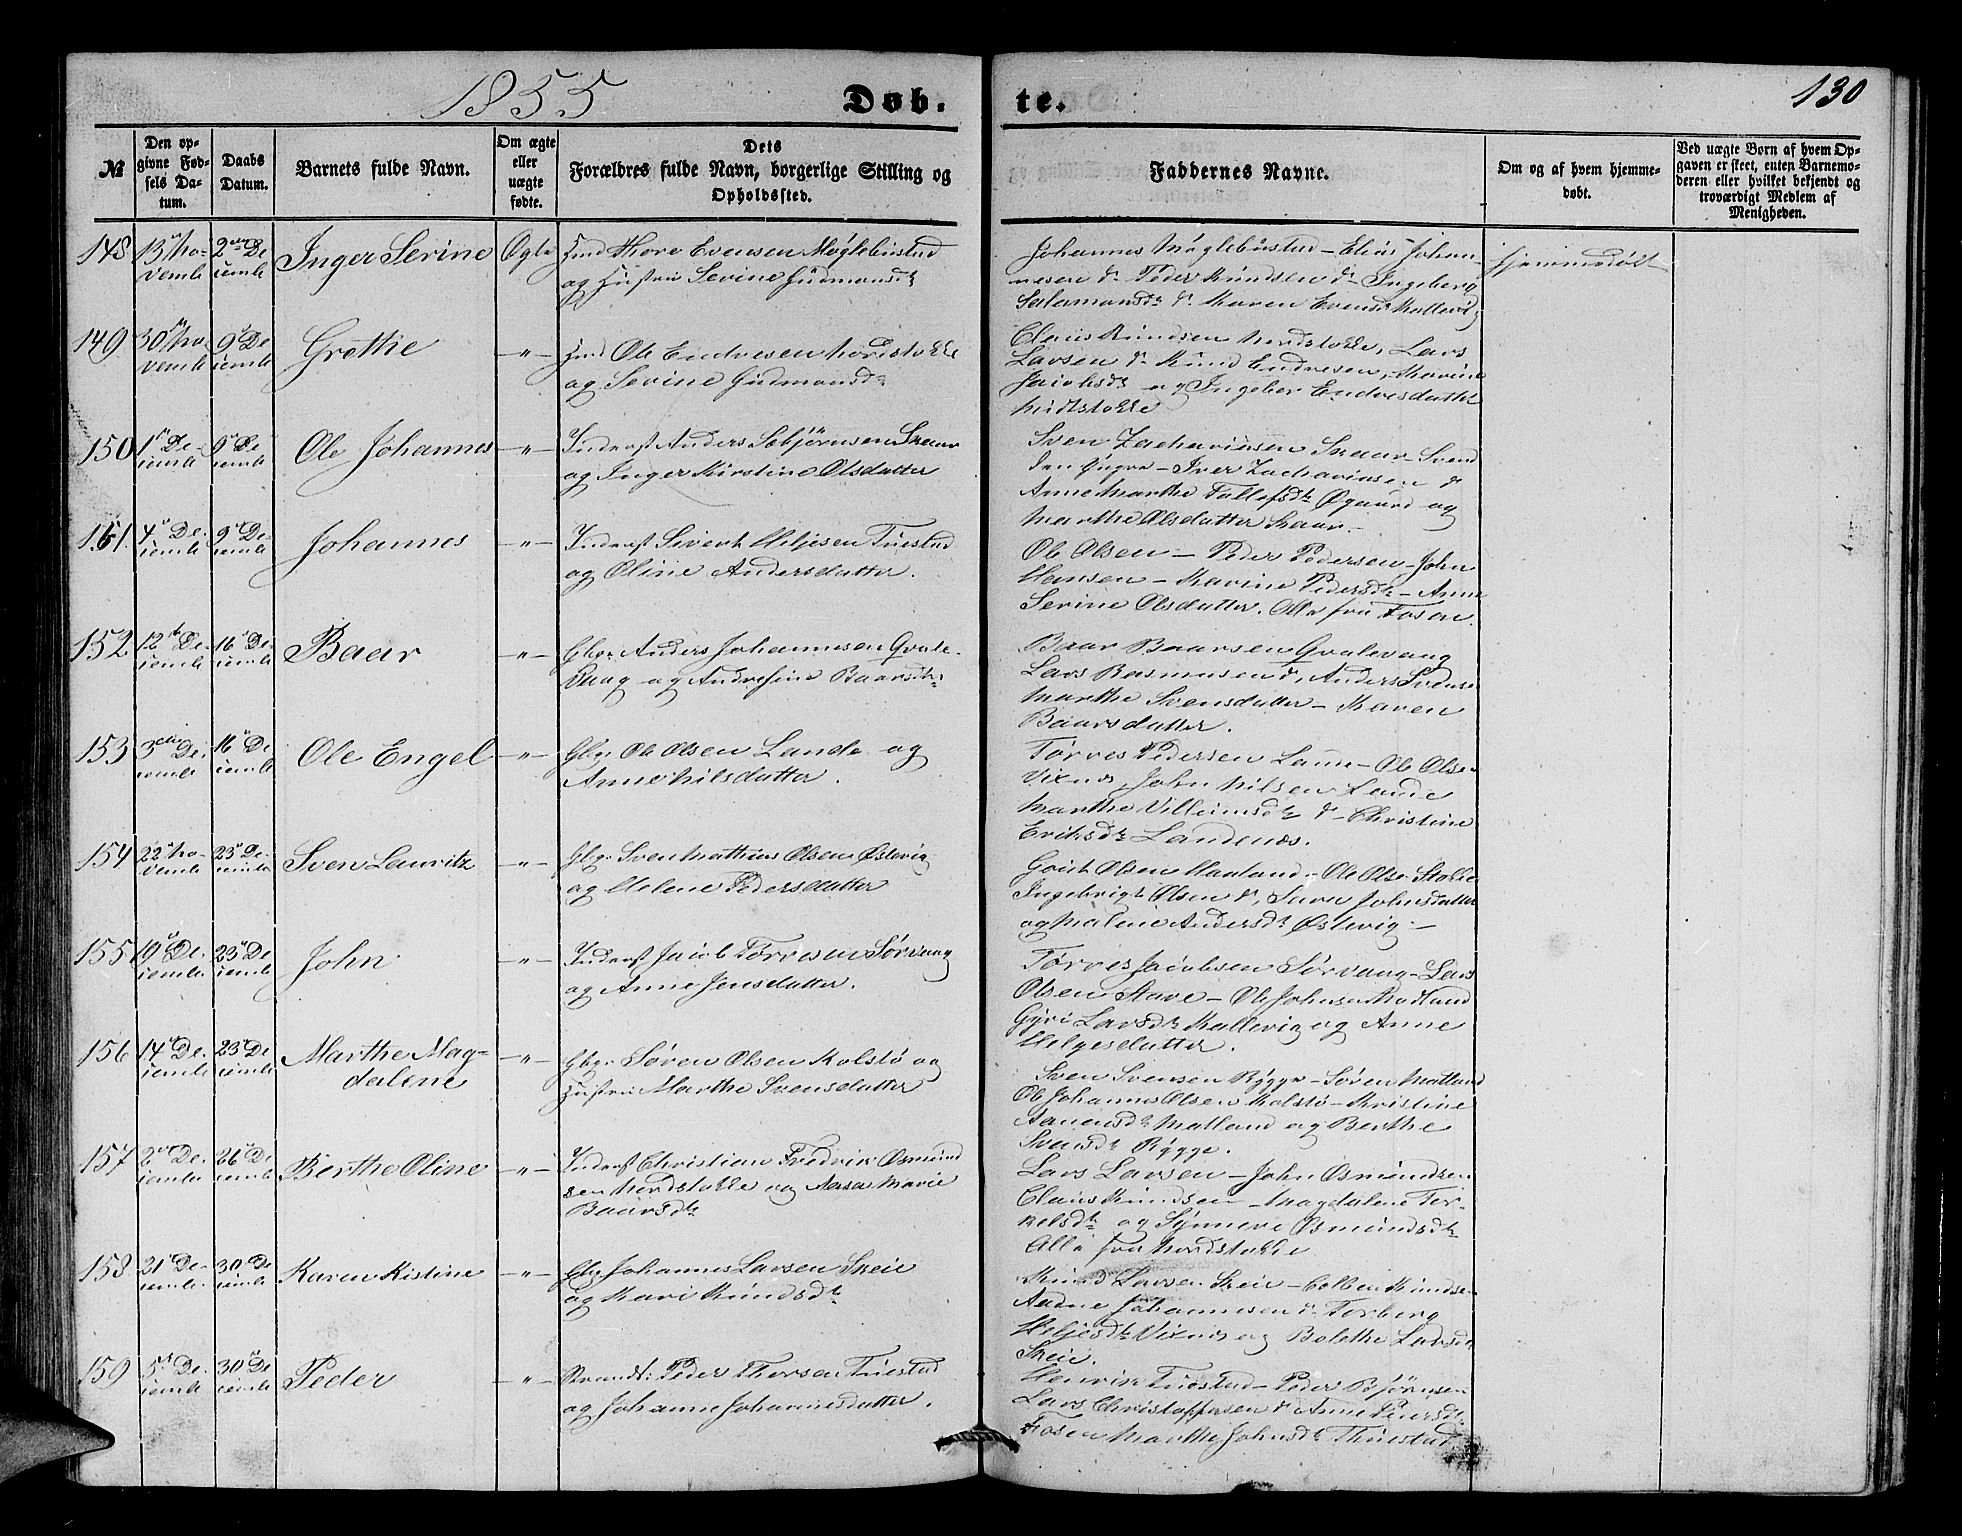 1855
Døb.
te.
130
№
Den opgivne Fødsels Datum.
Daabs Datum.
Barnets fulde Navn.
Om ægte eller uægte fødte.
Dets Forældres fulde Navn, borgerlige Stilling og Opholdssted.
Faddernes Navne.
Om og af hvem hjemmedøbt.
Ved uægte Børn af hvem Opgaven er skeet, enten Barnemoderen eller hvilket bekjendt og troværdigt Medlem af Menigheden.
148 13 November 2den December Inger Serine Ægte
Hmd Thore Evensen Møglebustad
og Hustru Serine Gudmansdr
Johannes Møglebustad – Elias Johannesen
Peder Knudsen Ingeborg
Salamonsdr Karen Evensdr Kallevig
hjemmedøbt
149 30 November 9 December Grethe –"–
Hmd Ole Endresen Nordstokke
og Serine Gudmansdr
Claus Knudsen Nordstokke, Lars
Larsen Knud Endresen, Karine
Jacobsdr og Ingeber Endresdatter
Nordstokke
150 1 December 9 December Ole Johannes –"–
Inderst Anders Asbjørnsen Skaar
og Inger Kirstine Olsdatter
Sven Zachariasen Skaar – Svend
Iver Zachariasen
Anne Marthe Tollefsdr Øgaard og
Marthe Olsdatter Skaar –
151. 4 December 9 December Johannes –"–
Inderst Sivert Heljesen Tuestad
og Oline Andersdatter.
Ole Olsen – Peder Pedersen – John
Hansen – Karine Pedersdr – Anne
Serine Olsdatter. Alle fra Fosen.
152 12 December 16 December Baar –"–
Gbr Anders Johannesen Qvalevaag
og Andresine Baarsdr
Baar Baarsen Qvalevaag
Lars Rasmusen Anders Svensen
Marthe Svensdatter – Karen
Baarsdatter.
153 3 December 16 December Ole Engel –"–
Gbr Ole Olsen Lande og
Anne Nilsdatter.
Tørres Pedersen Lande – Ole Olsen
Vixnes John Nilsen Lande
Marthe Villumsdr Christine
Eriksdr Landenæs.
154 22 November 23 December Sven Lauritz –"–
Gbr Sven Mathias Olsen Østevig
og Helene Pedersdatter
Olsen Haaland – Ole Olsen
Ingebrigt Olsen Sara Johnsdatter
og Malene Andersdr Østevig –
155 19 December 23 December John –"–
Inderst Jacob Tørresen Sørvaag
og Anne Jensdatter.
Tørres Jacobsen Sørvaag – Lars
Olsen Stave – Ole Johnsen Kodland
Gyri Larsdr Kallevig og Anne
Helgesdatter.
156 14 December 23 December Marthe Magdalene –"–
Gbr Søren Olsen Kolstø og
Hustru Marthe Svensdatter
Sven Svensen Rygge – Søren Matland
Ole Johannes Olsen Kolstø – Kristine
Aanensdr Matland og Berthe
Svensdr Rygge.
157 2 December 26 December Berthe Oline –"–
Inderst Christian Fredrik Osmundsen
Nordstokke og Aasa Marie
Baarsdr
Lars Larsen – John Osmundsen
Claus Knudsen – Magdalene Torkelsdr
og Synneve Osmundsdr
Alle fra Nordstokke
158 21 December 30 December Karen Kistine –"–
Gbr Johannes Larsen Skeie
og Kari Knudsdr
Knud Larsen Skeie – Colben Knudsen
Aadne Johannesen Torberg
Heljesdr Vixnes og Bolethe Larsdr
Skeie.
159 5 December 30 December Peder –"–
Strandr: Peder Thorsen Tuestad
og Johanne Johannesdatter.
Henrik Tuestad – Peder Bjørnsen
Lars Christoffersen Anne Pedersdr
Fosen Marthe Johnsdr Thuestad